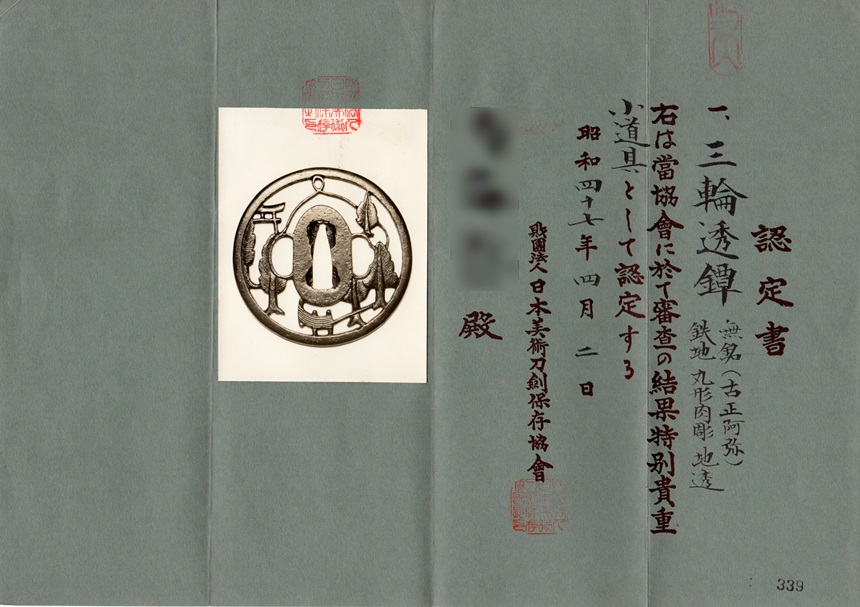 認定書
一、三輪透鐔
無銘(古正阿弥)
鉄地 丸形肉彫 地透
右は當協會に於て審査の結果特別貴重
小道具として認定する
昭和四十七年四月二日
財團法人日本美術刀劍保存協會
殿
339